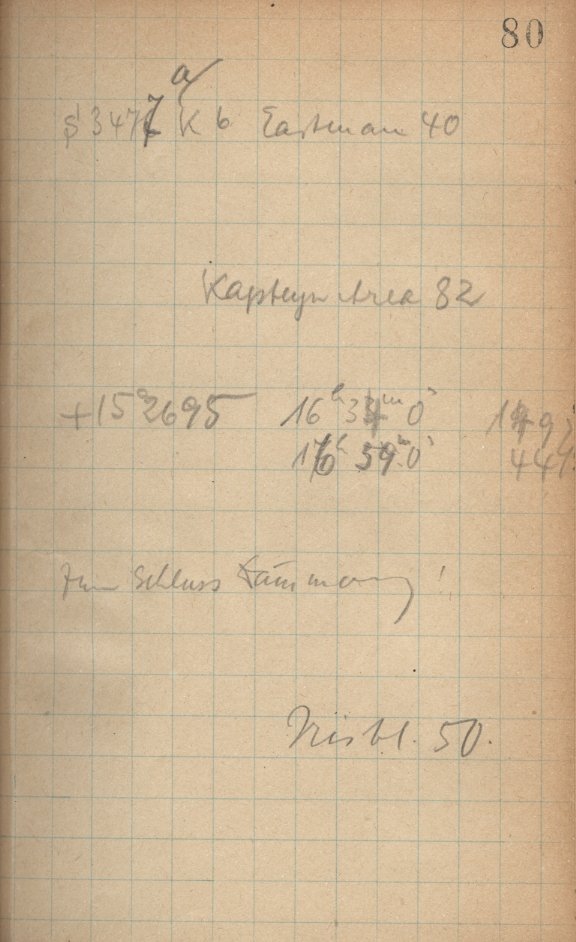 80
a
S 3477 K b Eastman 40
Kapteyn Area 82
+15°2695 16ʰ 34ᵐ 0ˢ
16ʰ 59ᵐ.0ˢ 44
Zum Schluss Dämmerung!
Irisbl. 50.